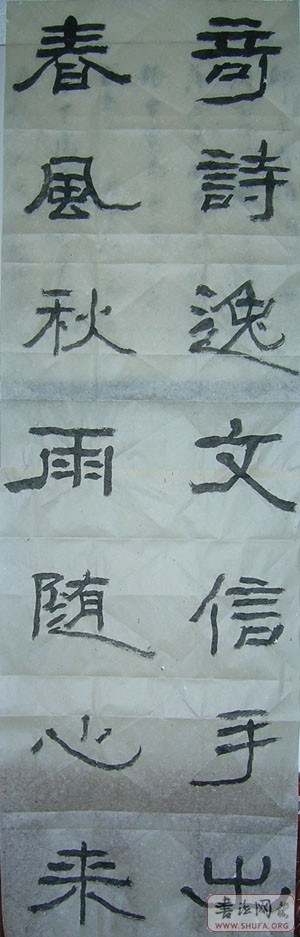 竒詩逸文信手出
春風秋雨随心来
书法网
WWW.SHUFA.ORG